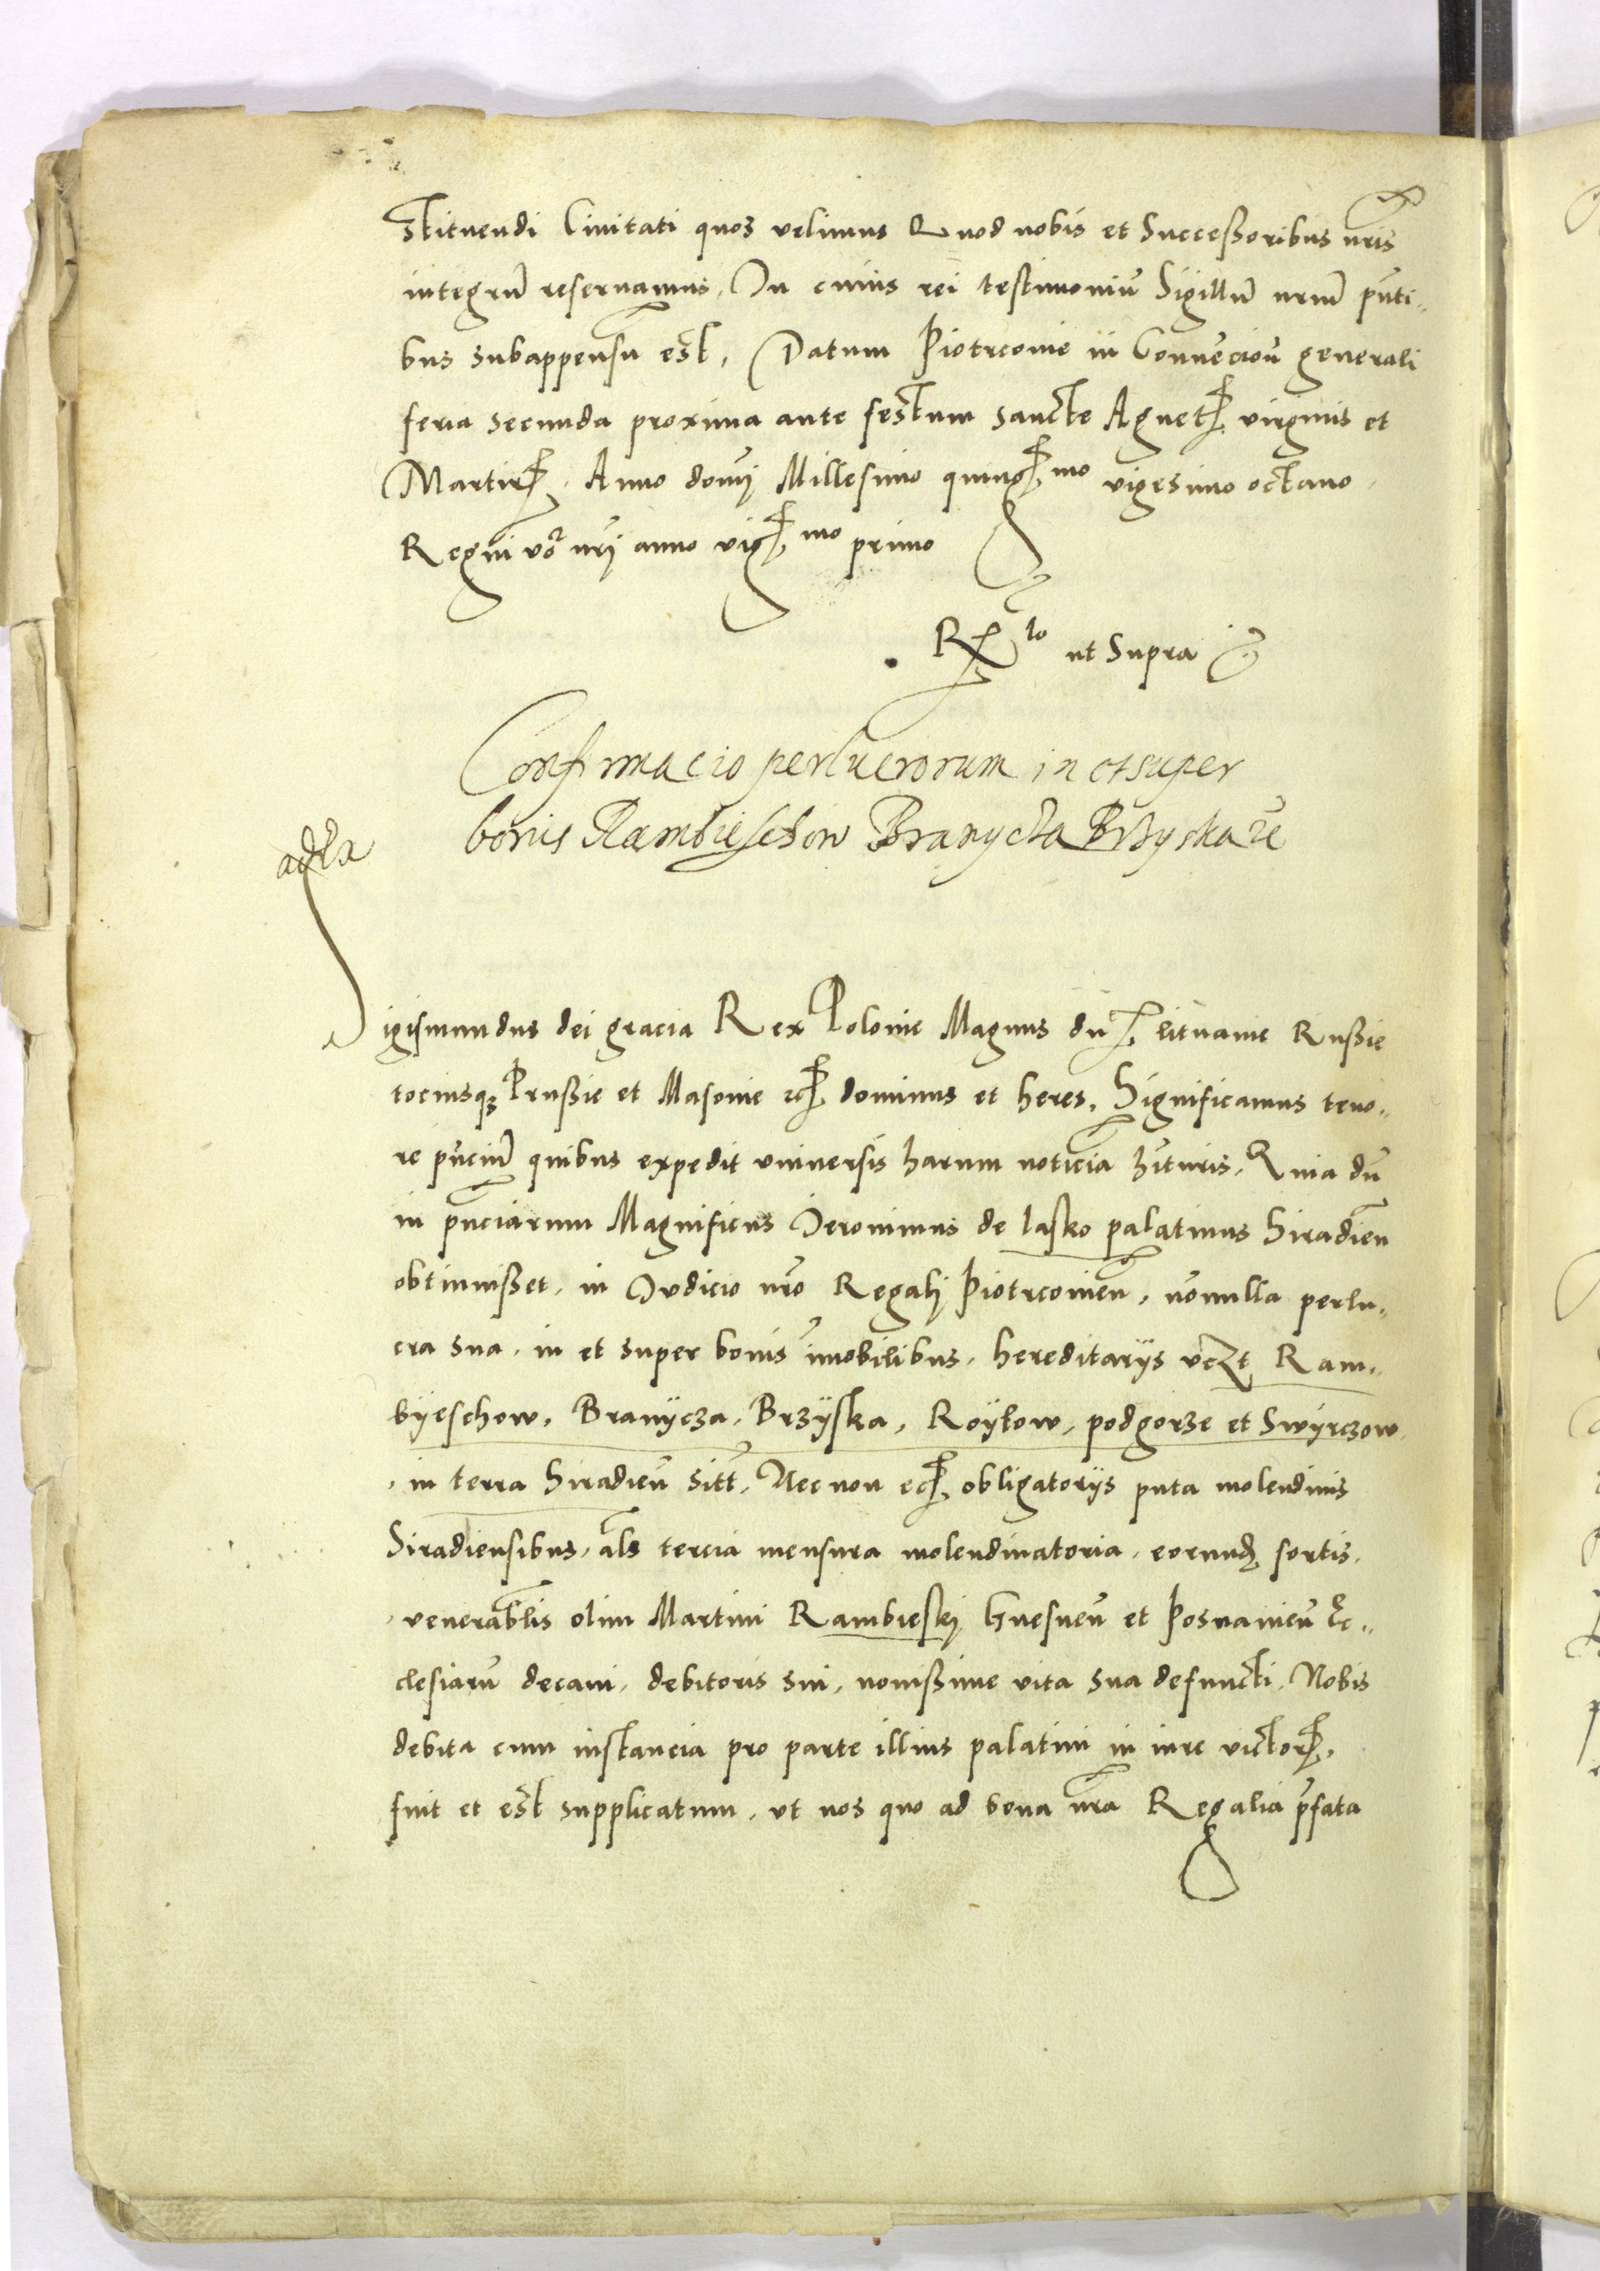 stituendi Civitati quos velimus Quod nobis et Successoribus nr̃is
integrũ reservamus. In cuius rei testimoniũ Sigillũ nrũm pñti„
bus subappensũ est. Datum Piotrcovie in Convẽcioñ generali
feria secunda proxima ante festum sancte Agnet virginis et
Martir. Anno domĩ Millesimo quing mo vigesimo octavo.
Regni vo nr̃i anno vig mo primo
R to ut Supra
Confirmacio perlucrorum in et super
bonis Rambieschow Branycza Brzyska zc̃
Sigismundus dei gracia Rex Polonie Magnus dux lituanie Russie
tociusq Prussie et Masovie zc dominus et heres. Significamus teno„
re pñciũ quibus expedit universis harum noticiã hĩturis. Quia dũ
in pñciarum Magnificus Jeronimus de lasko palatinus Siradieñ
obtinuisset. in Judicio nr̃o Regalj Piotrcovieñ. nõnulla perlu„
cra sua. in et super bonis ĩmobilibus. hereditariis vczt Ram„
byeschow. Branycza. Brzyska. Royłow. podgorze et Swyrczow.
in terra Siradieñ sitt̃. Nec non ec obligatoriis puta molendinis
Siradiensibus. als̃ tercia mensura molendinatoria. eorund sortis.
venerablis olim Martini Rambieskj Gnesneñ et Posnanieñ Ec„
clesiarũ decani. debitoris sui. novissime vita sua defuncti. Nobis
debita cum instancia pro parte illius palatini in iure victor.
fuit et est supplicatum. ut nos quo ad bona nr̃a Regalia p̃fata